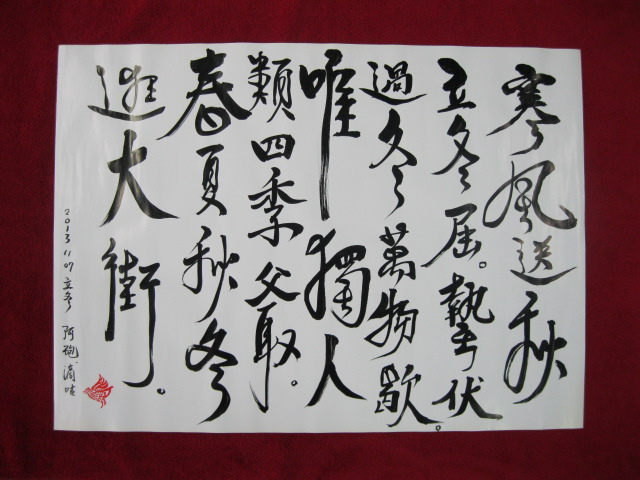 寒风送秋
立冬屈。蟄伏
過冬萬物歇。
唯獨人
類四季父取。
春夏秋冬
逛大街。
2013 11.07 立冬 阿 滴咕